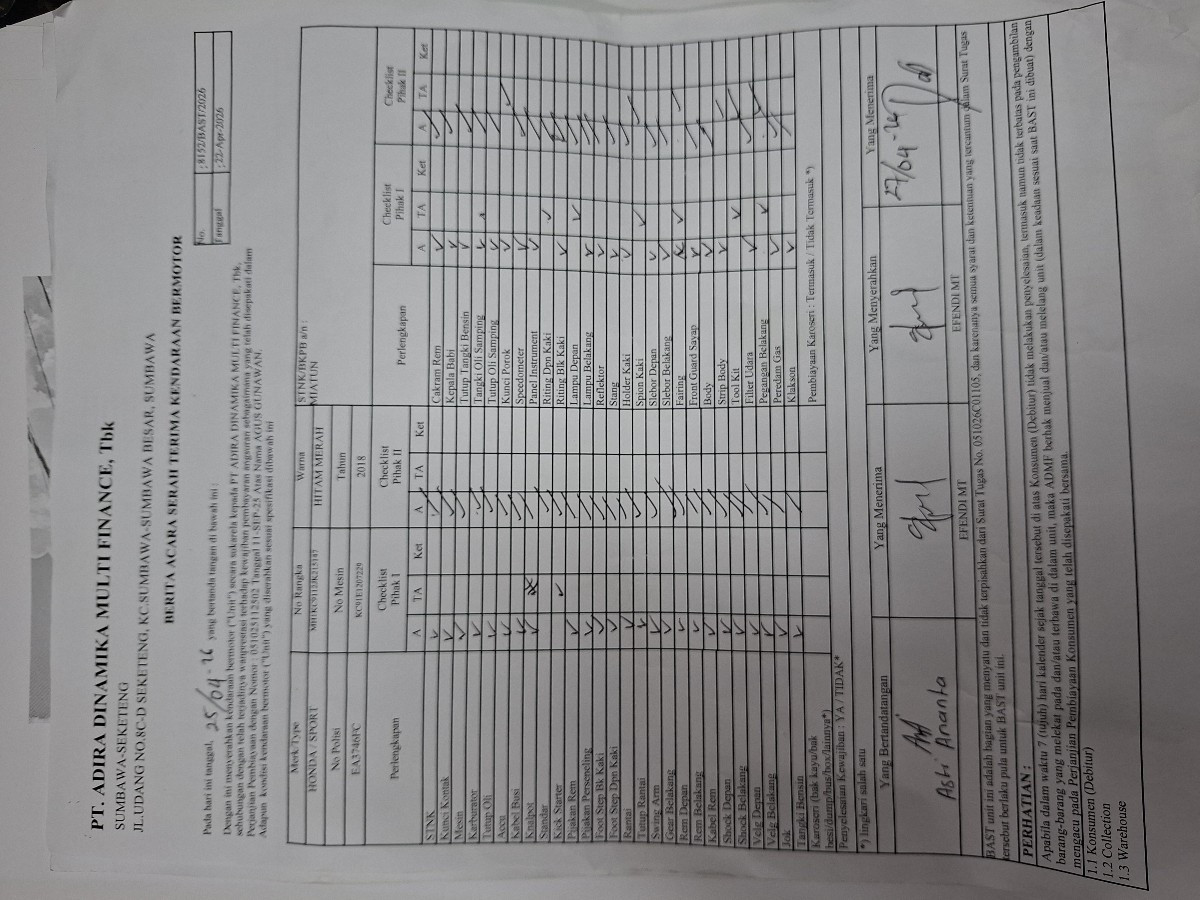 PT. ADIRA DINAMIKA MULTI FINANCE, Tbk
SUMBAWA-SEKETENG
JL.UDANG NO.8C-D SEKETENG, KC.SUMBAWA-SUMBAWA BESAR, SUMBAWA
BERITA ACARA SERAH TERIMA KENDARAAN BERMOTOR
No. : 8152/BAST/2026
Tanggal : 22-Apr-2026
Pada hari ini tanggal, 25/04-26 yang bertanda tangan di bawah ini :
Dengan ini menyerahkan kendaraan bermotor ("Unit") secara sukarela kepada PT ADIRA DINAMIKA MULTI FINANCE, Tbk,
sehubungan dengan telah terjadinya wanprestasi terhadap kewajiban pembayaran angsuran sebagaimana yang telah disepakati dalam
Perjanjian Pembiayaan dengan Nomor : 051025112502 Tanggal 11-SEP-25 Atas Nama AGUS GUNAWAN.
Adapun kondisi kendaraan bermotor ("Unit") yang diserahkan sesuai spesifikasi dibawah ini
Merk/Type No Rangka Warna STNK/BKPB a/n :
HONDA / SPORT HITAM MERAH MIATUN
No Polisi No Mesin Tahun
EA3746FC KC91E1207229 2018
Perlengkapan Checklist Pihak I Checklist Pihak II Perlengkapan Checklist Pihak I Checklist Pihak II
A TA Ket A TA Ket A TA Ket A TA Ket
STNK Cakram Rem
Kunci Kontak Kepala Babi
Mesin Tutup Tangki Bensin
Karburator Tangki Oli Samping
Tutup Oli Tutup Oli Samping
Accu Kunci Porok
Kabel Busi Speedometer
Knalpot Panel Instrument
Standar Riting Dpn Kaki
Kick Starter Riting Blk Kaki
Pijakan Rem Lampu Depan
Pijakan Perseneling Lampu Belakang
Foot Step Blk Kaki Reflektor
Foot Step Dpn Kaki Stang
Rantai Holder Kaki
Tutup Rantai Spion Kaki
Swing Arm Slebor Depan
Gear Belakang Slebor Belakang
Rem Depan Fairing
Rem Belakang Front Guard Sayap
Kabel Rem Body
Shock Depan Strip Body
Shock Belakang Tool Kit
Velg Depan Filter Udara
Velg Belakang Pegangan Belakang
Jok Peredam Gas
Tangki Bensin Klakson
Karoseri (bak kayu/bak
besi/dump/bus/box/lainnya*) Pembiayaan Karoseri : Termasuk / Tidak Termasuk *)
Penyelesaian Kewajiban : YA / TIDAK*
*) lingkari salah satu
Yang Bertandatangan Yang Menerima Yang Menyerahkan Yang Menerima
Asti Ananta 27/04-26
EFENDI MT EFENDI MT
BAST unit ini adalah bagian yang menyatu dan tidak terpisahkan dari Surat Tugas No. 051026C01105, dan karenanya semua syarat dan ketentuan yang tercantum dalam Surat Tugas
tersebut berlaku pula untuk BAST unit ini.
PERHATIAN :
Apabila dalam waktu 7 (tujuh) hari kalender sejak tanggal tersebut di atas Konsumen (Debitur) tidak melakukan penyelesaian, termasuk namun tidak terbatas pada pengambilan
barang-barang yang melekat pada dan/atau terbawa di dalam unit, maka ADMF berhak menjual dan/atau melelang unit (dalam keadaan sesuai saat BAST ini dibuat) dengan
mengacu pada Perjanjian Pembiayaan Konsumen yang telah disepakati bersama.
1.1 Konsumen (Debitur)
1.2 Collection
1.3 Warehouse